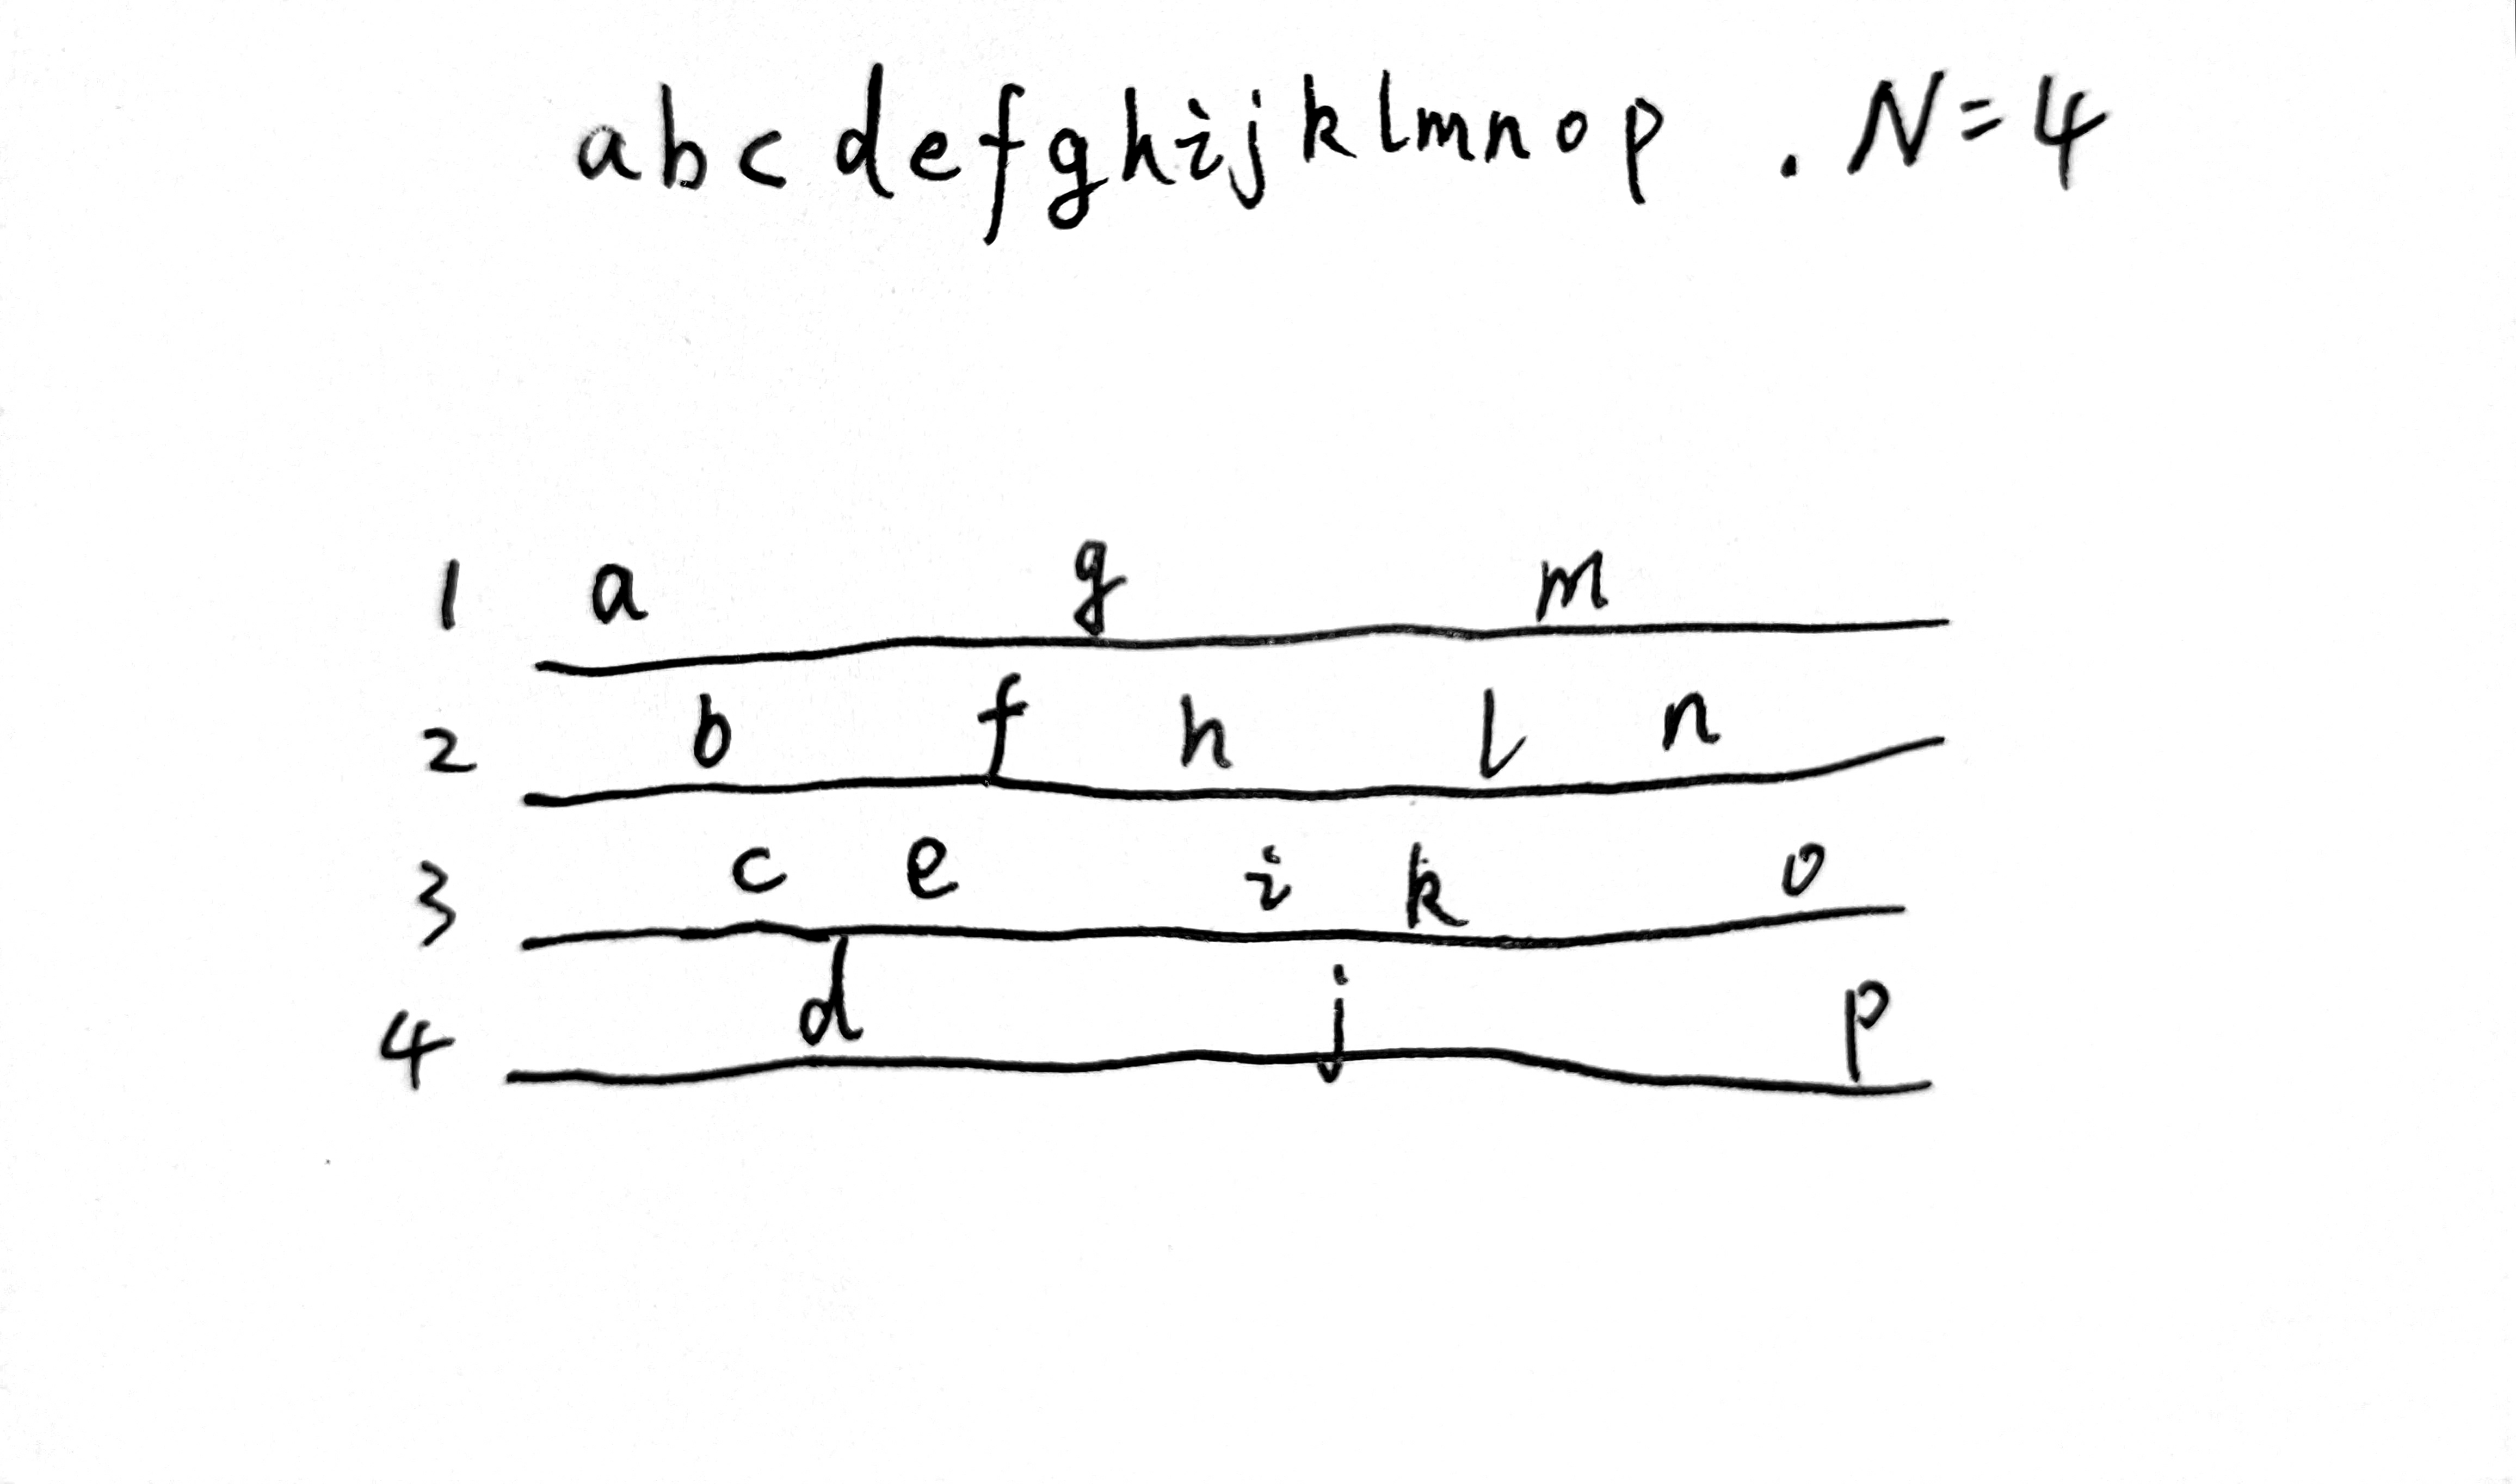 abcdefghijklmnop . N=4
1 a g m
2 b f h l n
3 c e i k o
4 d j p